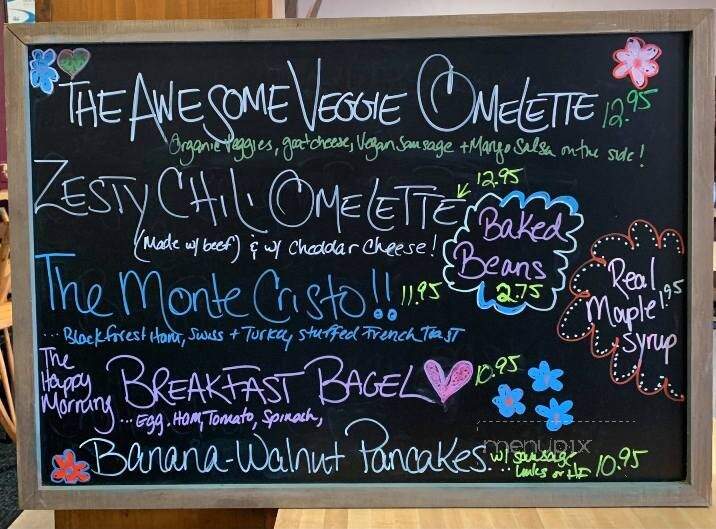 THE AWESOME VEGGIE OMELETTE 12.95
Organic Veggies, goat cheese, Vegan Sausage + Mango Salsa on the side!
ZESTY CHILI OMELETTE 12.95
(Made w/ beef) & w/ Cheddar Cheese!
Baked
Beans
2.75
The Monte Cristo!! 11.95
...Blackforest Ham, Swiss + Turkey stuffed French Toast
Real
Maple 1.95
Syrup
The
Happy
Morning
BREAKFAST BAGEL 10.95
...Egg, Ham, Tomato, Spinach,
Banana-Walnut Pancakes... w/ sausage
links or 10.95
menupix